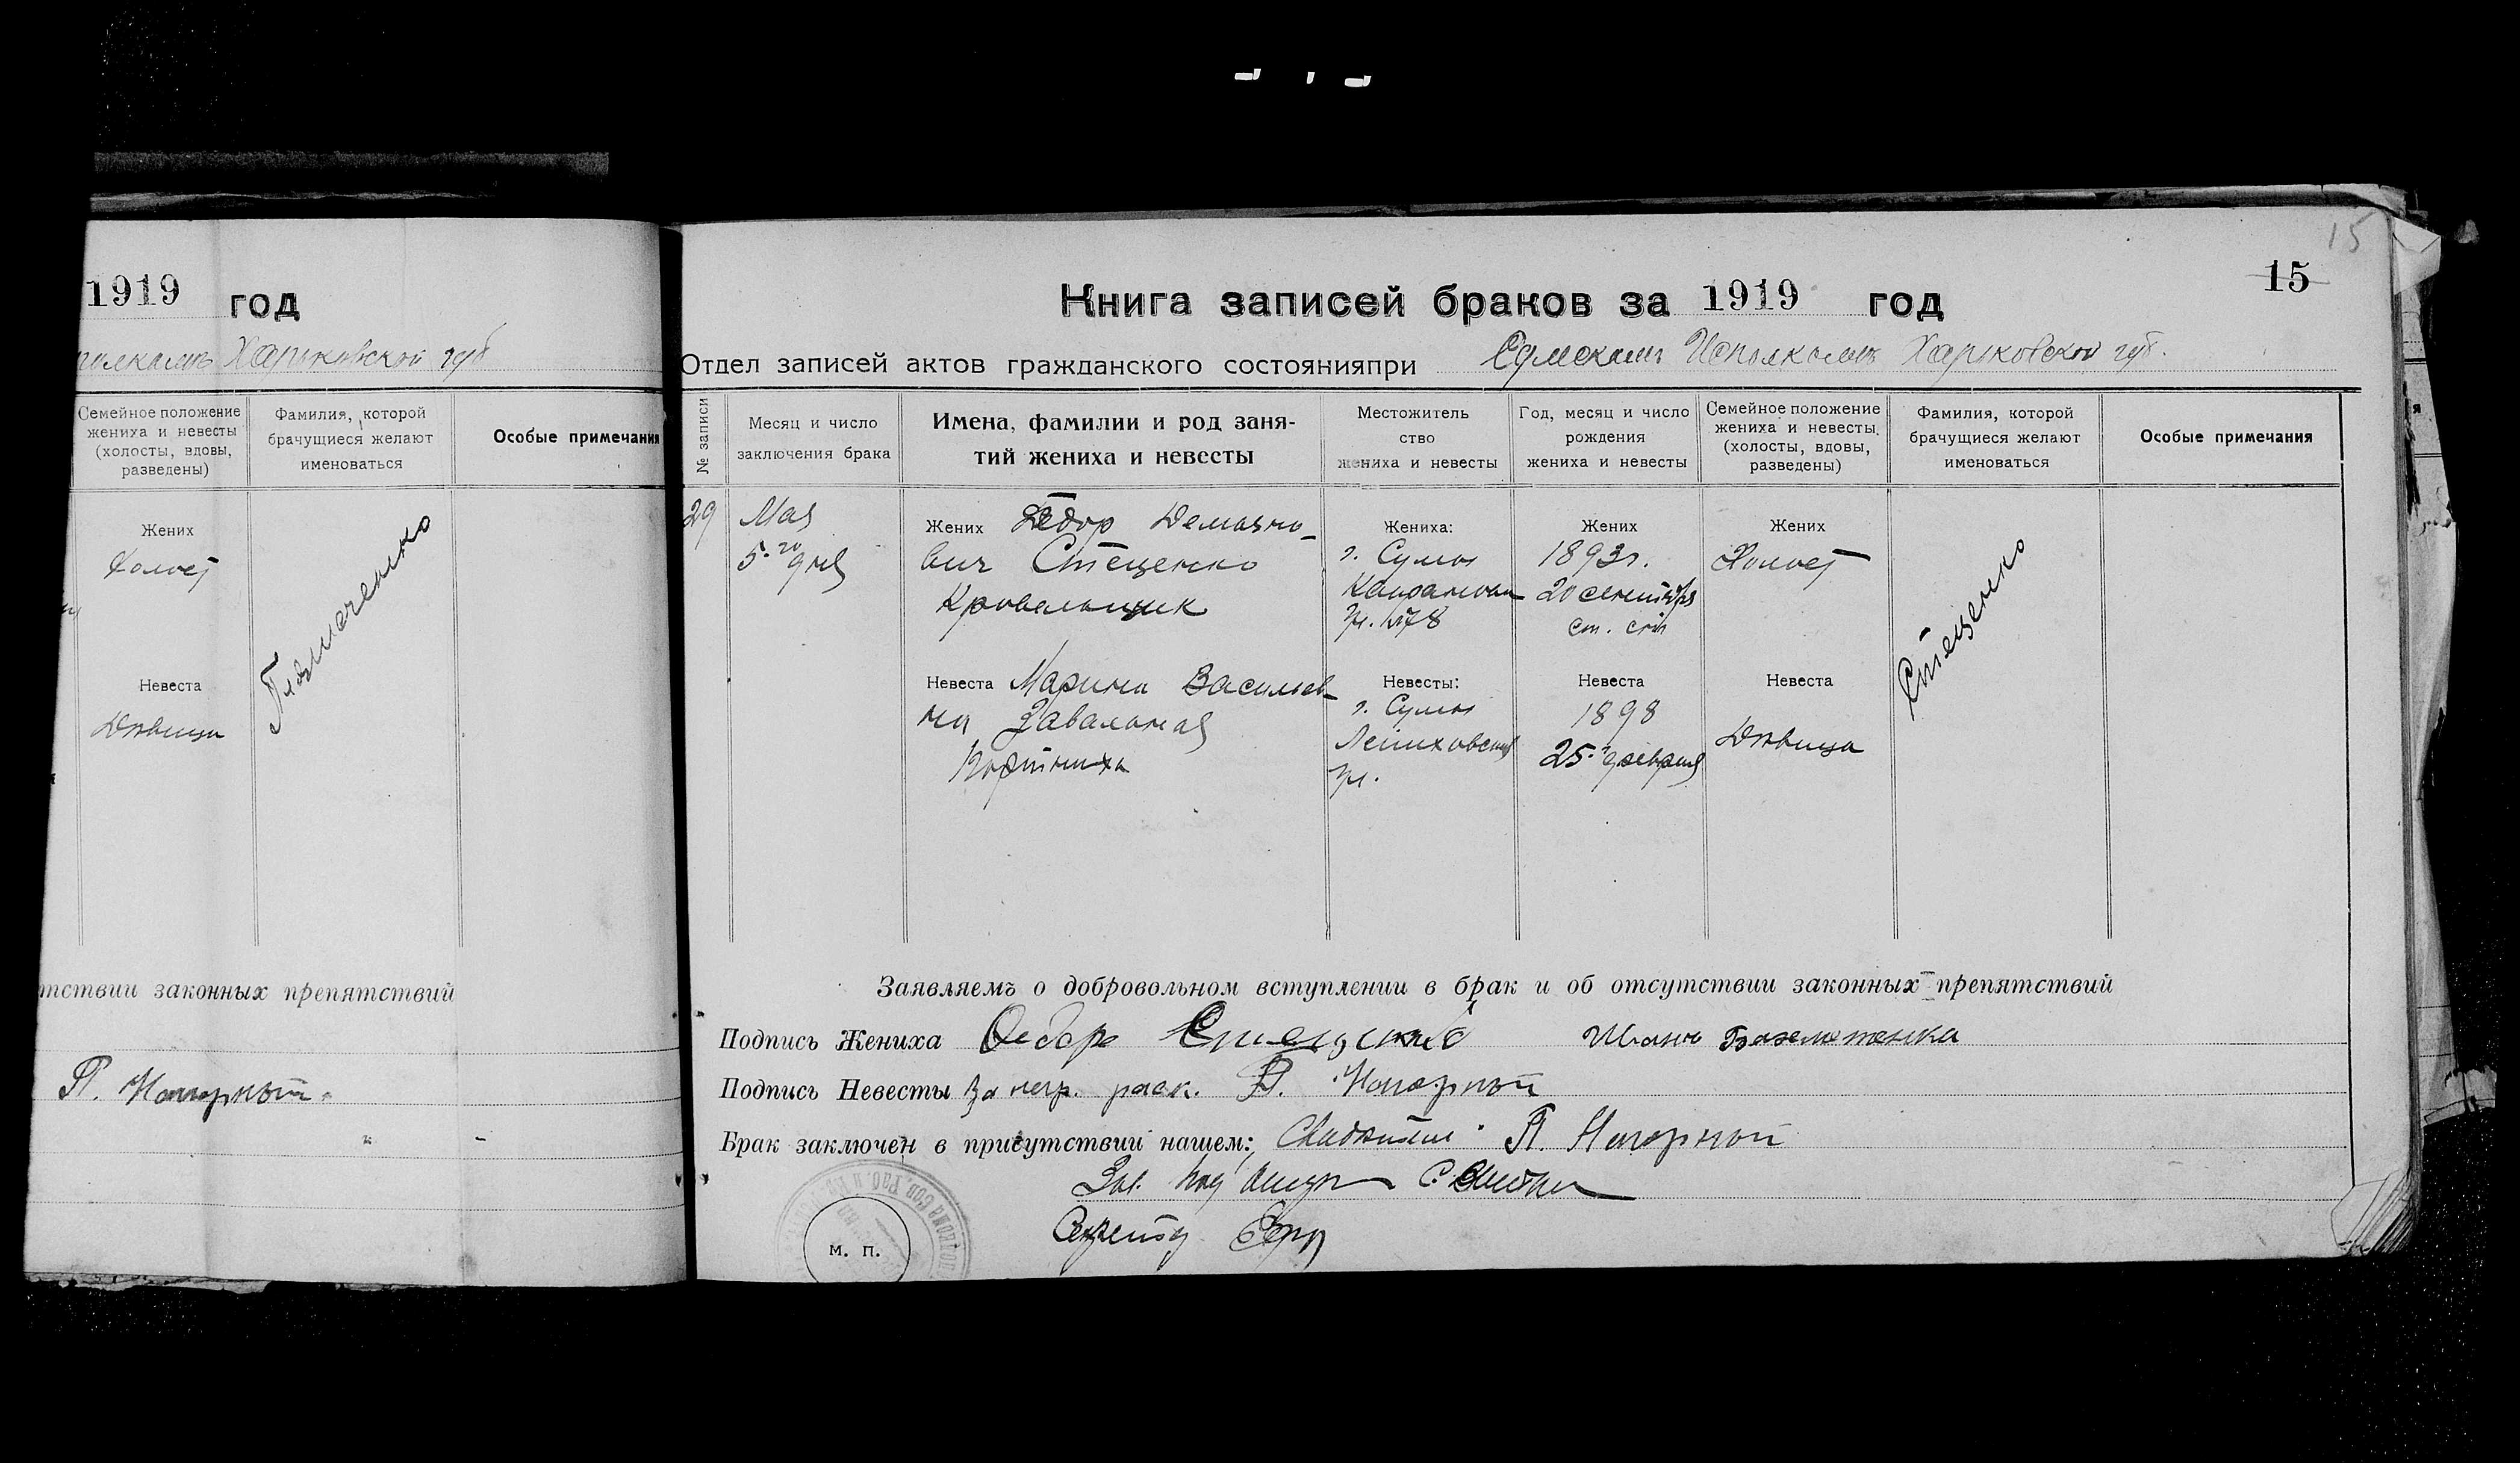 1919 год
Харьковской губ
Семейное положение
жениха и невесты
(холосты, вдовы,
разведены)
Фамилия, которой
брачущиеся желают
именоваться
Особые примечания
Жених
Холост
Невеста
Дѣвица
тствии законных препятствий
П. Нагорный
15
15
Книга записей браков за 1919 год
Отдел записей актов гражданского состоянияпри Сумском Исполкоме Харьковской губ.
№ записи
Месяц и число
заключения брака
Имена, фамилии и род заня-
тий жениха и невесты
Местожитель
ство
жениха и невесты
Год, месяц и число
рождения
жениха и невесты
Семейное положение
жениха и невесты.
(холосты, вдовы,
разведены)
Фамилия, которой
брачущиеся желают
именоваться
Особые примечания
29
Мая
5.го дня
Жених Федор Демьяно-
вич Стеценко
Кровельщик
Жениха:
г. Сумы
ул. №78
Жених
1893г.
20 сентября
ст. стил
Жених
Холост
Стеценко
Невеста Марина Васильев-
на Завальная
Портниха
Невесты:
г. Сумы
ул.
Невеста
1898
25.го февраля
Невеста
Дѣвица
Заявляемъ о добровольном вступлении в брак и об отсутствии законных препятствий
Подпись Жениха Федоръ Стеценко Иванъ
Подпись Невесты За негр. раск. П. Нагорный
Брак заключен в присутствии нашем: Свидетели П. Нагорный
Зав.
Секретарь
м. п.